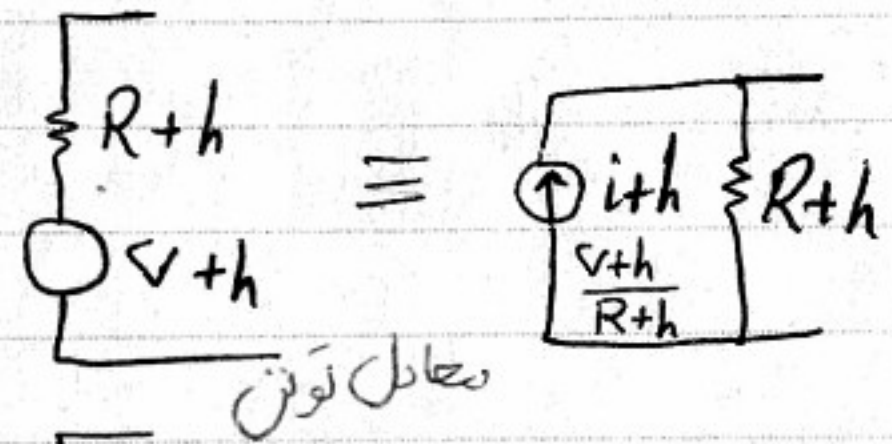 R+h
V+h
≡
i+h
V+h
R+h
R+h
معادل تَونن